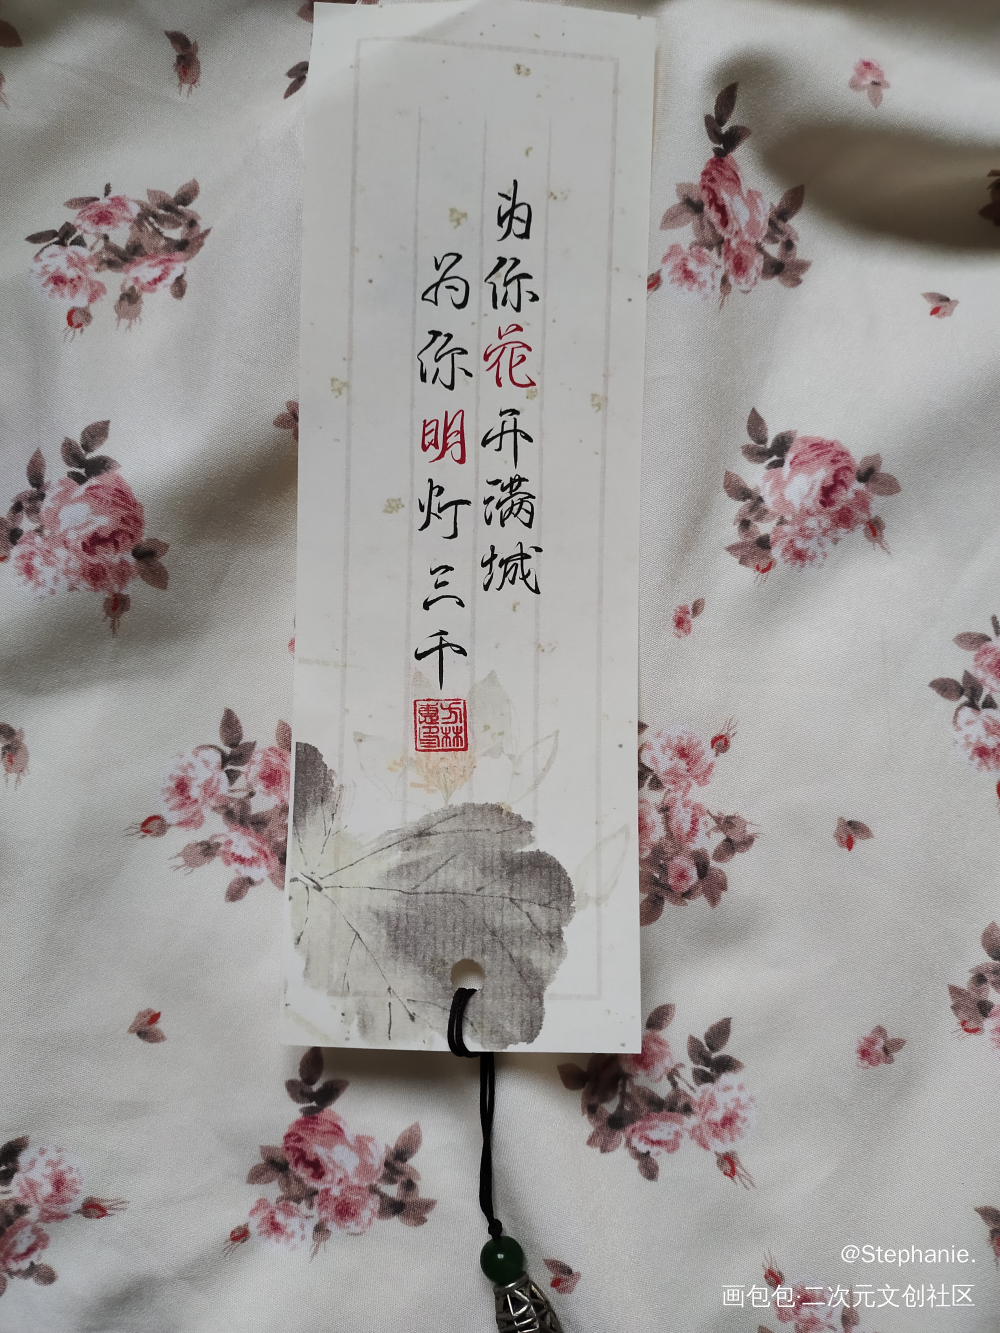 为你花开满城
为你明灯三千
@Stephanie.
画包包·二次元文创社区